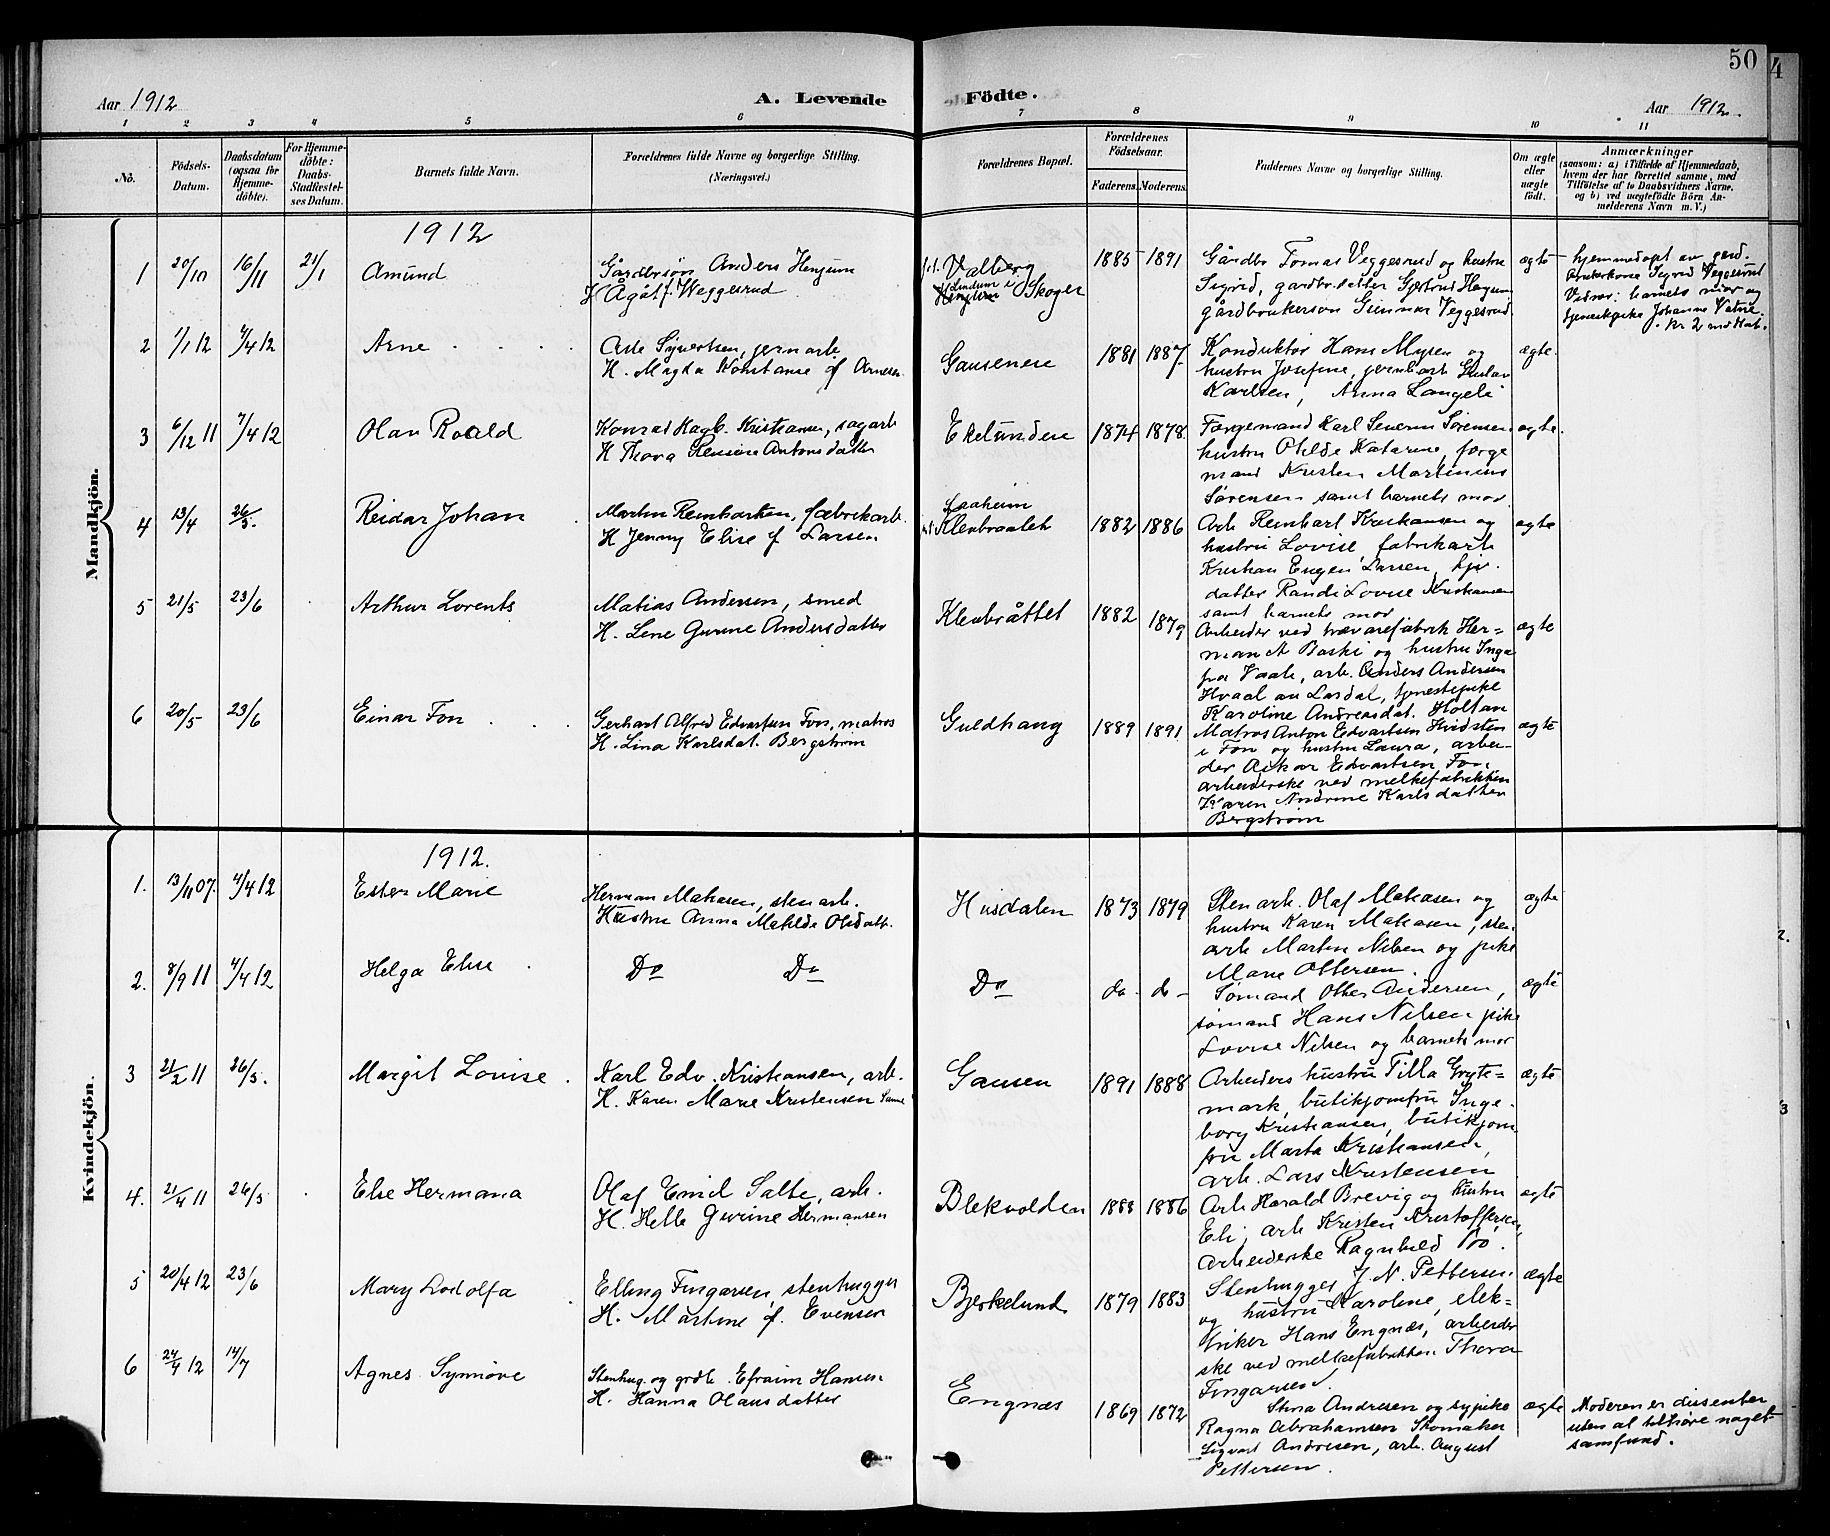 50
4
Aar 1912
A. Levende
Födte.
Aar 1912.
1 2 3 4 5 6 7 8 9 10 11
No.
Födsels-Datum.
Daabsdatum (ogsaa for Hjemme-döbte).
For Hjemme-döbte: Daabs-Stadfæstel-ses Datum.
Barnets fulde Navn.
Forældrenes fulde Navne og borgerlige Stilling.
(Næringsvei.)
Forældrenes Bopæl.
Forældrenes Födselsaar.
Faderens. Moderens.
Faddernes Navne og borgerlige Stilling.
Om ægte eller uægte födt.
Anmærkninger
(saasom: a) i Tilfælde af Hjemmedaab, hvem der har forrettet samme, med Tilföielse af to Daabsvidners Navne, og b) ved uægtefödte Börn An-melderens Navn m. V.)
Mandkjön.
1912
1 20/10 16/11 21/1 Amund
Gårdbrsøn Anders Henjum
H Ågåt f. Weggesrud
Valberg
Lindum i Skoger
1885 1891
Gårdbr Tomas Veggesrud og hustru
Sigrid, gardbr.datter Gjertrud Henjum
gårdbrukersøn Gunnar Veggesrud
ægte
hjemmedøpt av gård-
brukerkone Sigrid Veggesrud
Vidner: barnets mor og
tjenestepike Johanne Vatne.
2 1/1 12 7/4 12 Arne
Syvertsen, jernarb.
H. Magda Konstanse f Arnesen
Gausenene
1881 1887
Konduktør Hans Mysen og
hustru Josefine, jernbarb Gustav
Karlsen, Anna Langeli
ægte.
3 6/12 11 7/4 12 Olav Roald
Konrad Hagb. Kristiansen, sagarb
H Thora Antonsdatter
Ekelunden
1874 1878
Færgemand Karl Severin Sørensen
hustru Otilde Katarine, færge
mand Kristen Martinius
Sørensen samt barnets mor
ægte.
4 13/4 26/5. Reidar Johan
Martin Reinhartsen, fabrikarb.
H Jenny Elise f Larsen
Klenbraatet
1882 1886
Arb Reinhart Kristiansen og
hustru Lovise, fabrikarb
Kristian Eugen Larsen,
datter Randi Lovise Kristiansen
samt barnets mor
ægte
5 21/5 23/6 Arthur Lorents
Matias Andersen, smed
H. Lene Gurine Andersdatter
Klenbråttet
1882 1879
Arbeider ved trævarefabrik Her=
man A Baski og hustru Inga
fra Vaale, arb. Anders Andersen
Hvaal av Lardal, tjenestepike
Karoline Andreasdat. Holtan
ægte
6 20/5 23/6 Einar Fon
Gerhart Alfred Edvartsen Fon, matros
H. Lina Karlsdat. Bergstrøm
Guldhaug
1889 1891
Matros Anton Edvartsen Hvidsten
i Fon og hustru Laura, arbei-
der Askar Edvartsen Fon
arbeiderske ved melkefabrikken
Karen Andrine Karlsdatter
Bergstrøm
ægte
Kvindekjön.
1912.
1. 13/11 07. 4/4 12 Ester Marie
Herman Matiasen, stenarb.
Hustru Anna Matilde Olsdatt.
Husdalen
1873 1879
Stenarb. Olaf Matiasen og
hustru Karen Matiasen, sten
arb Martin Nilsen og pike
Marie Ottersen.
ægte
2. 8/9 11 4/4 12 Helga Elise
Do Do
Do
do- do-
Sømand Otter Andersen,
sømand Hans Nilsen pike
Lovise Nilsen og barnets mor
ægte
3 21/2 11 26/5. Margit Louise
Karl Edv. Kristiansen, arb.
H. Karen Marie Kristensen
Gausen
1891 1888
Arbeiders hustru Tilla Gryte=
mark, butikjomfru Inge-
borg Kristiansen, butikjom-
fru Marta Kristiansen,
arb. Lars Kristensen
ægte
4. 21/4 11 26/5 Else Hermana
Olaf Emil Salte, arb.
H. Helle Gurine Hermansen
Blekvolden
1888 1886
Arb Harald Brevig og hustru
Eli, arb Kristen Kristoffersen,
arbeiderske Ragnhild
ægte
5 20/4 12 23/6 Mary Lodolfa
Elling Fingarsen, stenhugger
H. Martine f. Evensen
Bjerkelund
1879 1883
Stenhugger J. N. Pettersen
og hustru Karoline, elek-
triker Hans Engnæs, arbeider
ske ved melkefabrikken Thora
Fingarsen.
ægte
6 24/4 12 14/7 Agnes Synnøve
Stenhug. og grdb. Efraim Hansen
H. Hanna Olausdatter
Engnæs
1869 1872
Stina Andresen og sypike
Ragna Abrahamsen Skomaker
Sigvart Andresen, arb. August
Pettersen.
ægte
Moderen er dissenter
uten at tilhøre noget
samfund.